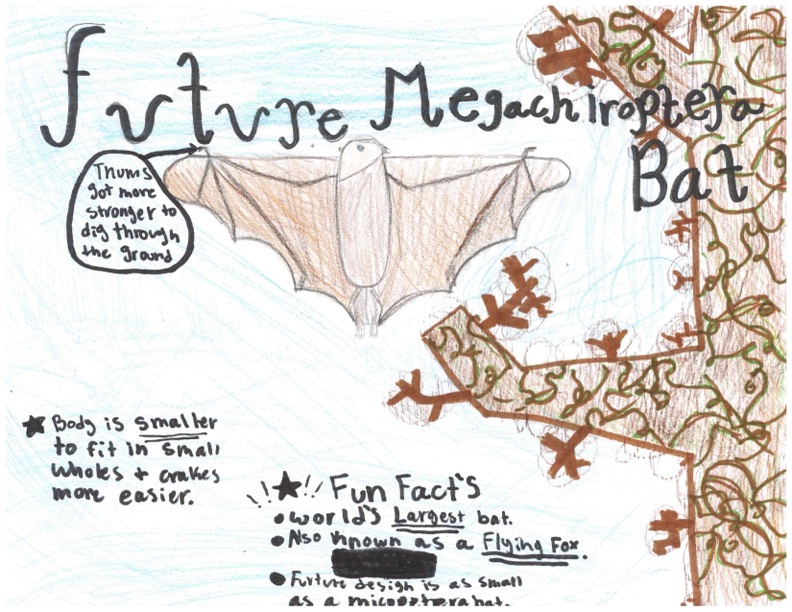 Future Megachiroptera
Bat
Thums
got more
stronger to
dig through
the ground
Body is smaller
to fit in small
wholes + crakes
more easier.
!! ★ !! Fun Fact's
• world's Largest bat.
• Also known as a Flying Fox.
• Furture design is as small
as a micoptera bat.